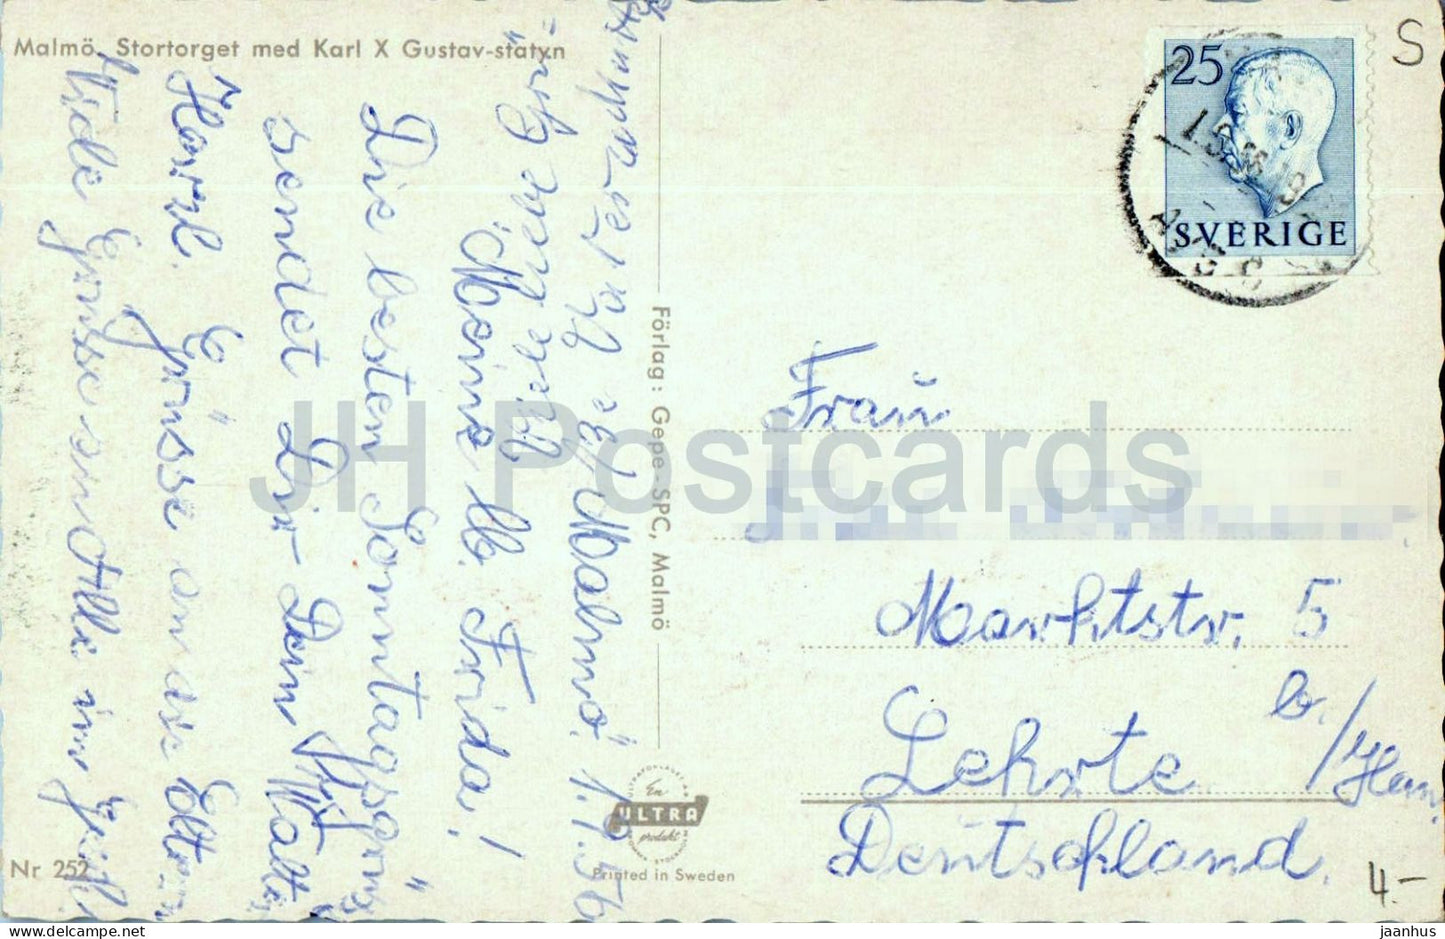 Malmö. Stortorget med Karl X Gustav-statyn
S
25
SVERIGE
1.5.56
"Malmö" 1.5.56
Meine lb. Frida!
Die besten Sonntagsgrüs
sendet Dir Dein
Karl. Grüsse an die Eltern
Viele Grüsse an Alle im
Viele liebe Grü=
Förlag: Gepe-SPC, Malmö
En
ULTRA
produkt
Printed in Sweden
Nr 252
Frau
Marktstr. 5
Lehrte b./Han.
Deutschland.
4.-
JH Postcards
www.delcampe.net
jaanhus